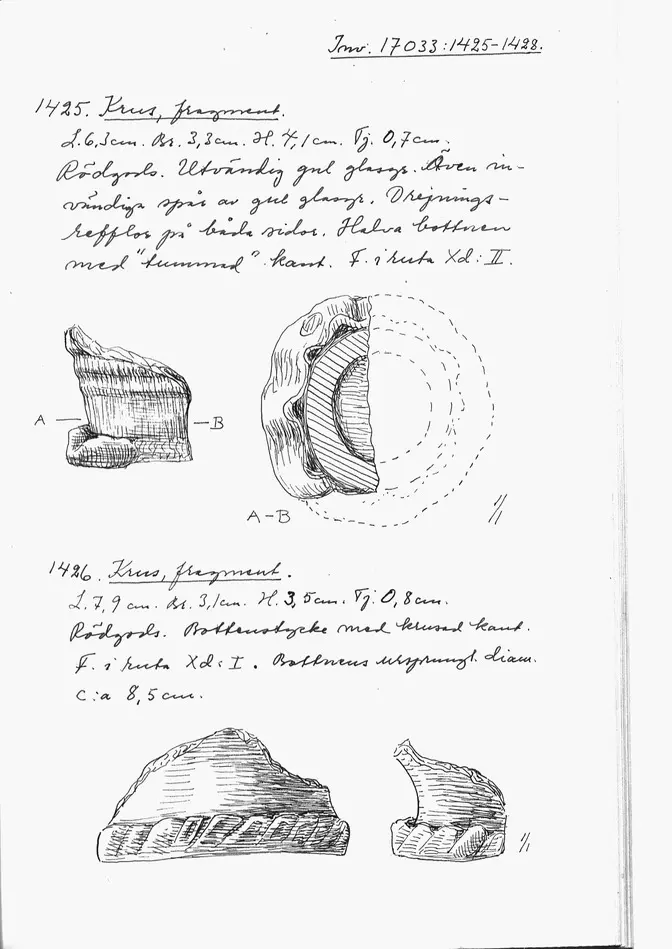 Inv. 17033:1425-1428.
1425. Krus, fragment.
L. 6,3cm. Br. 3,3cm. H. 4,1cm. Tj. 0,7cm.
Rödgods. Utvändig gul glasyr. Även in-
vändiga spår av gul glasyr. Drejnings-
refflor på båda sidor. Halva bottnen
med "tummad" kant. F. i ruta Xd: II.
A
B
A-B
1/1
1426. Krus, fragment.
L. 7,9 cm. Br. 3,1cm. H. 3,5cm. Tj. 0,8cm.
Rödgods. Bottenstycke med krusad kant.
F. i ruta Xd: I. Bottnens ursprungl. diam.
c:a 8,5cm.
1/1